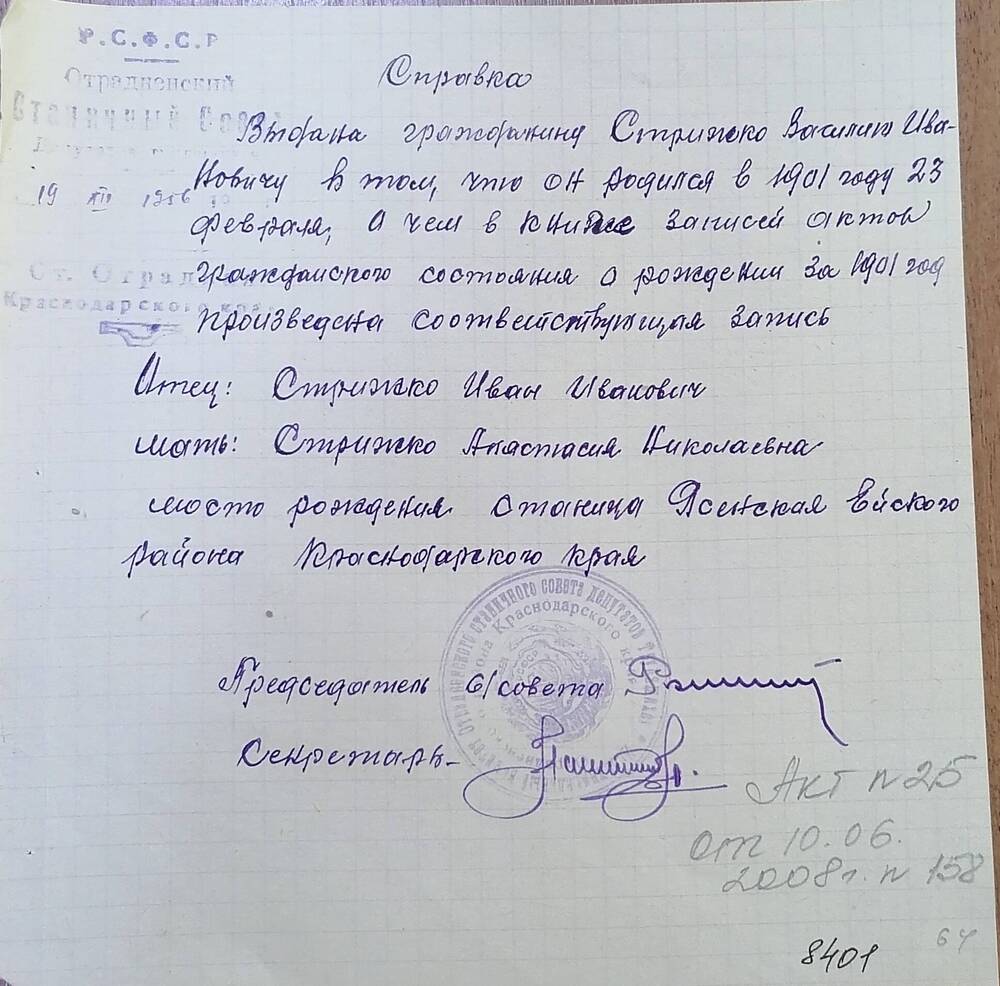 Р.С.Ф.С.Р
Отрадненский
Станичный Сов
19 XII 1956
Ст. Отрадн
Краснодарского края
Справка
Выдана гражданину Стрижко Василию Ива-
новичу в том, что он родился в 1901 году 23
февраля, о чем в книге записей актов
гражданского состояния о рождении за 1901 год
произведена соответствующая запись
Отец: Стрижко Иван Иванович
мать: Стрижко Анастасия Николаевна
место рождения станица Ясенская Ейского
района Краснодарского края
Председатель с/совета
Секретарь-
Отрадненского станичного совета депутатов
Краснодарского края
Акт n 25
от 10.06.
2008г. n 158
8401
64